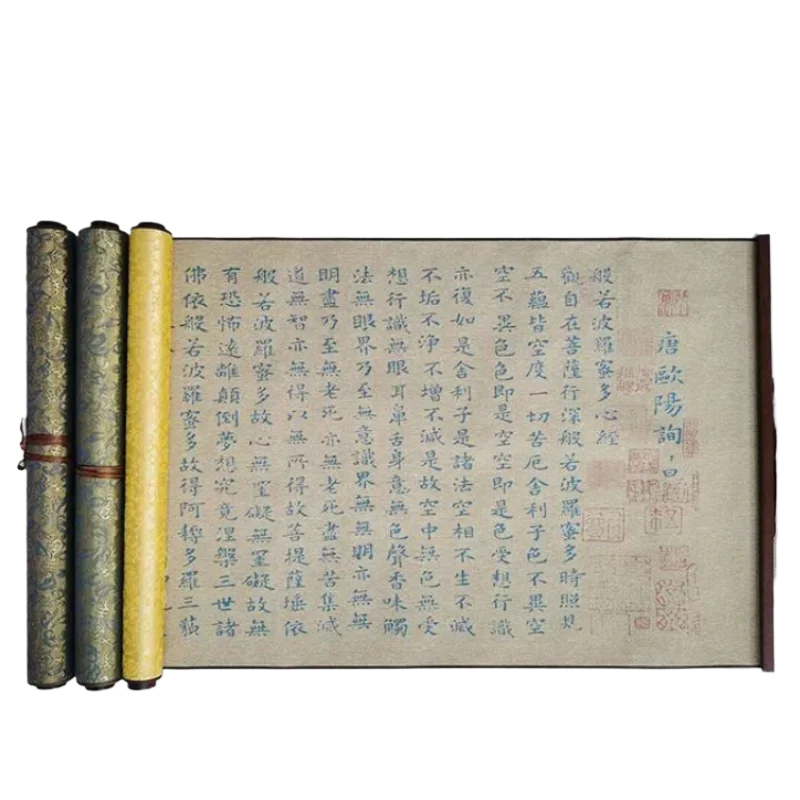 唐歐陽詢
般若波羅蜜多心經
觀自在菩薩行深般若波羅蜜多時照見
五蘊皆空度一切苦厄舍利子色不異空
空不異色色即是空空即是色受想行識
亦復如是舍利子是諸法空相不生不滅
不垢不淨不增不減是故空中無色無受
想行識無眼耳鼻舌身意無色聲香味觸
法無眼界乃至無意識界無無明亦無無
明盡乃至無老死亦無老死盡無苦集滅
道無智亦無得以無所得故菩提薩埵依
般若波羅蜜多故心無罣礙無罣礙故無
有恐怖遠離顛倒夢想究竟涅槃三世諸
佛依般若波羅蜜多故得阿耨多羅三藐